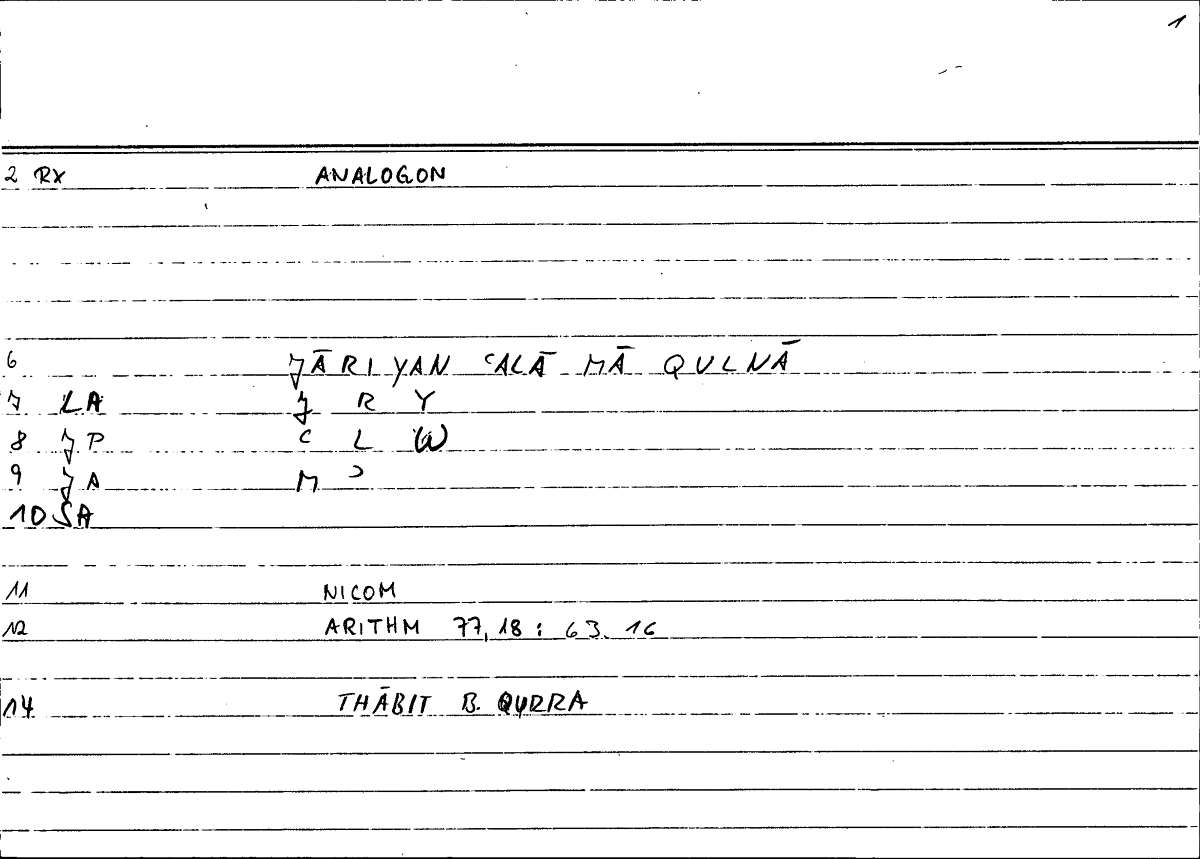 1
2 RX ANALOGON
6 JĀRIYAN ʿALĀ MĀ QULNĀ
7 LA J R Y
8 JP ʿ L W
9 JA M ʾ
10 SA
11 NICOM
12 ARITHM 77,18 : 63.16
14 THĀBIT B. QURRA